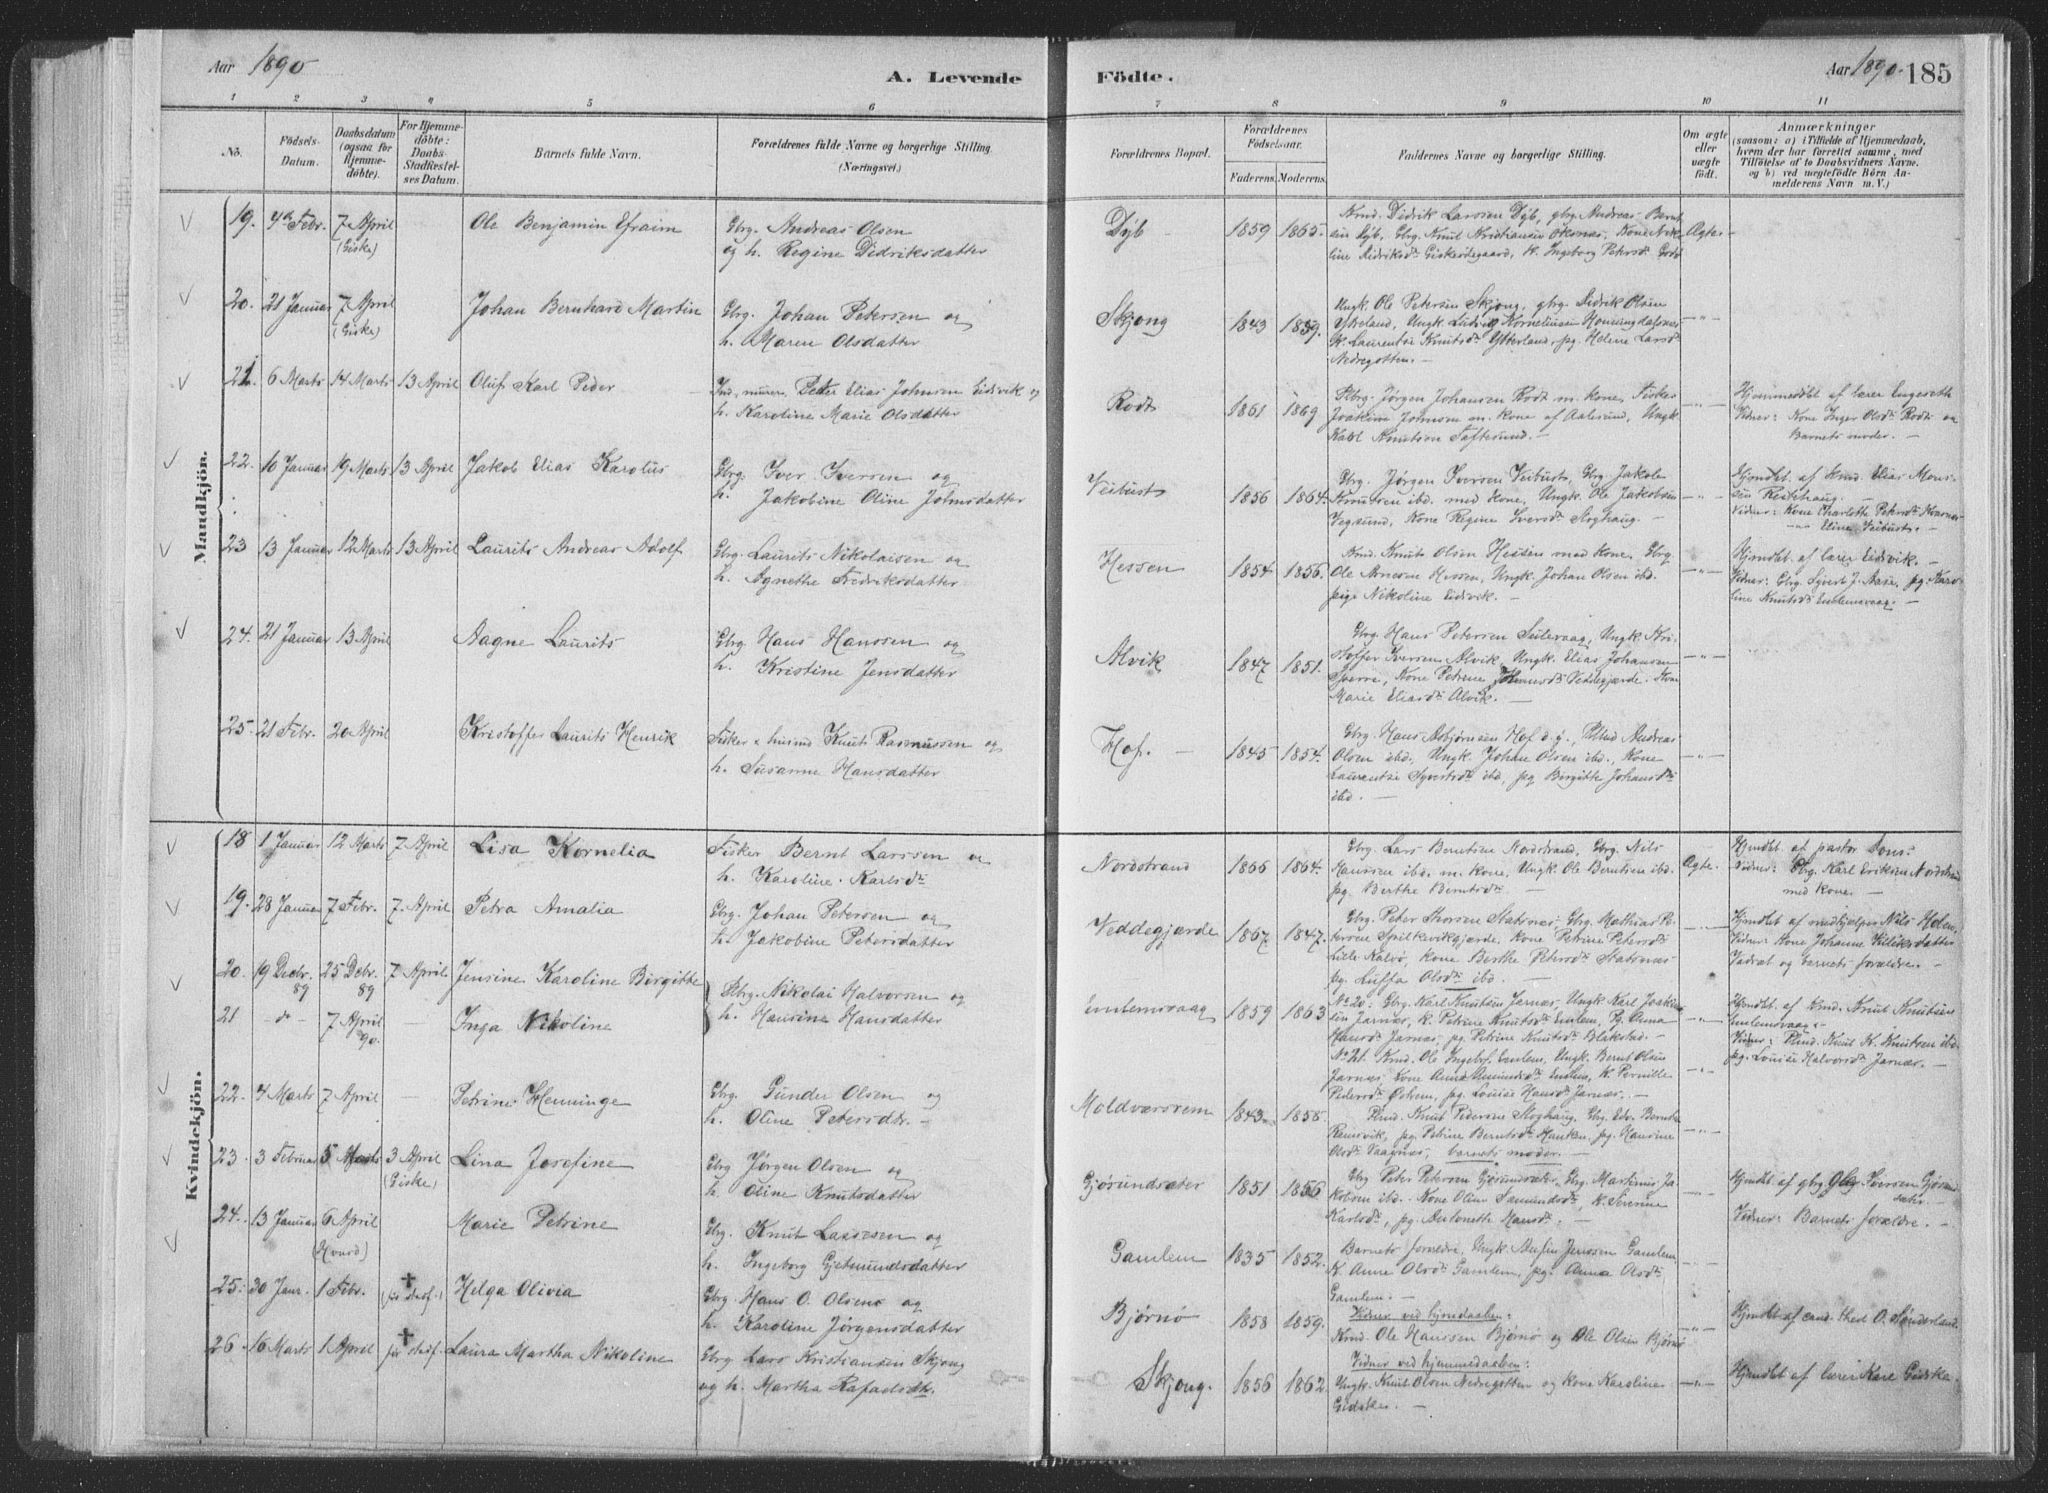 Aar 1890
A. Levende
Födte.
Aar 1890. 185
1 2 3 4 5 6 7 8 9 10 11
No.
Födsels-Datum.
Daabsdatum (ogsaa for Hjemme-döbte).
For Hjemme-döbte: Daabs-Stadfæstel-ses Datum.
Barnets fulde Navn.
Forældrenes fulde Navne og borgerlige Stilling. (Næringsvei.)
Forældrenes Bopæl.
Forældrenes Födselsaar.
Faderens. Moderens.
Faddernes Navne og borgerlige Stilling.
Om ægte eller uægte födt.
Anmærkninger
(saasom: a) i Tilfælde af Hjemmedaab, hvem der har forrettet samme, med Tilföielse af to Daabsvidners Navne. og b) ved uægtefödte Börn An-melderens Navn m. V.)
Mandkjön.
19. 4de Febr. 7 April (Giske) Ole Benjamin Efraim Gbrg. Andreas Olsen
og h. Regine Didriksdatter
Dyb 1859 1865. Krmd. Didrik Larssen Dyb, gbrg. Andreas Bernt-
sen Dyb, Gbrg. Knut Kristiansen Oksnes, Kone Nik-
line Didriksdr Giskeødegaard, K. Ingeborg Petersdr Godø
Ægte
20. 21 Januar 7 April (Giske) Johan Bernhard Martin Gbrg. Johan Petersen og
h. Maren Olsdatter
Skjong 1843 1859. Ungk. Ole Petersen Skjong, gbrg. Didrik Olsen
Ytreland, Ungk. Ludvig Kornelius
K. Laurentse Knutsdr Ytterland, pg. Helene Larsdr
Nedregotten. —
21. 6 Marts 14 Marts 13 April Oluf Karl Peder Ind., murer, Peter Elias Johnsen Eidsvik og
h. Karoline Marie Olsdatter
Rodt 1861 1869 Gbrg. Jørgen Johansen Rodt m. kone, Fisker
Joakim Johnsen m. kone af Aalesund, Ungk.
Karl Knutsen Tøftesund. —
Hjemmedbt af lærer Engeseth
Vidner: Kone Inger Olsdr Rodt og
Barnets moder. —
22. 10 Januar 19 Marts 13 April Jakob Elias Karolus Gbrg. Iver Iversen og
h. Jakobine Oline Johnsdatter
Veibust 1856 1864. Gbrg. Jørgen Iversen Veibust, Gbrg. Jakob
Knutsen ibd. med Kone, Ungk. Ole Jakobsen
Vegsund, Kone Regine Iversdr Slyghaug. —
Hjmdbt. af Krmd. Elias Mons-
sen
Vidner: Kone Charlotte Petersdr
Eline Veibust. —
23 13 Januar 12 Marts 13 April Laurits Andreas Adolf Gbrg. Laurits Nikolaisen og
h. Agnethe Fredriksdatter
Hessen 1854 1856. Krmd. Knut Olsen Hessen med Kone, Gbrg.
Ole Arnesen Hessen, Ungk. Johan Olsen ibd.
pige Nikoline Eidsvik. —
Hjmdbt. af lærer Eidsvik. —
Vidner: Gbrg. Syvert J. Aase, pg. Karo-
line Knutsdr Emlemsvaag. —
24. 21 Januar 13 April Aagne Laurits Gbrg. Hans Hanssen og
h. Kristine Jensdatter
Alvik 1847 1851. Gbrg. Hans Petersen Seilevaag, Ungk. Kri-
stoffer Iversen Alvik, Ungk. Elias Johansen
Sperre, Kone Petrine Veddegjærde, Kone
Marie Eliasdr Alvik.
25. 21 Febr. 20 April Kristoffer Laurits Henrik Fisker & husmd Knut Rasmussen og
h. Susanne Hansdatter
Hof. — 1845 1854. Gbrg. Hans Asbjørnsen Hof d.y., Plmd Andreas
Olsen ibd., Ungk. Johan Olsen ibd., Kone
Laurentse Syvertsdr ibd, pg Birgitte Johansdr
ibd. —
Kvindekjön.
18 1 Januar 12 Marts 7 April Lisa Kornelia Fisker Bernt Larssen og
h. Karoline Karlsdr
Nordstrand 1866 1864. Gbrg. Lars Berntsen Nordstrand, Gbrg. Nils
Hanssen ibd. m. Kone, Ungk. Ole Berntsen ibd.
pg Berthe Berntsdr. —
Ægte.
Hjmdbt. af pastor Sons:
Vidner: Gbrg. Karl Eriksen Nordstrand
med Kone. —
19. 28 Januar 7 Febr. 7 April Petra Amalia Gbrg. Johan Petersen og
h. Jakobine Petersdatter
Veddegjærde 1867 1847. Gbrg. Peter Thorsen Slatsnes, Gbrg. Mathias Pe-
tersen Spilkevikgjærde, Kone Petrine Petersdr
Lille Kalvø, Kone Berthe Petersdr Slatsnes
pg. Luffa Olsdr ibd.
Hjmdbt af medhjælper Nils Holen,
Vidner: Kone Johanne
og barnets forældre. —
20. 19 Decbr. 89 25 Dcbr. 89 7 April Jensine Karoline Birgitte
21 — do — 7 April 90. — Inga Nikoline
Gbrg. Nikolai Halvorsen og
h. Hansine Hansdatter
Emlemsvaag 1859 1863 No 20: Gbrg. Karl Knutsen Jarnæs, Ungk. Karl Joakim-
sen Jarnæs, K. Petrine Knutsdr Emlem, Pg. Anna
Hansdr Jarnæs, pg. Petrine Knutsdr Blikstad. —
No 21. Krmd. Ole Ingebr. Emlem, Ungk. Bernt Olsen
Jarnæs, Kone Anna Amundsdr Emlem, K. Pernille
Pedersdr, pg. Louise Hansdr Jarnæs. —
Hjmdbt. af Krmd. Knut Knutsen
Emlemsvaag. —
Vidner: Plmd. Knut K. Knutsen ibd.
pg. Louise Halvorsdr Jarnæs. —
22. 4 Marts 7 April — Petrine Henninge Gbrg. Gunder Olsen og
h. Oline Petersdtr. —
Moldværsrem 1843 1858. Plmd. Knut Pedersen Slyghaug, Gbrg. Edv. Berntsen
Ramsvik, pg. Petrine Berntsdr Hanken, pg. Hansine
Olsdr Vaagnes, barnets moder. —
23. 3 Februar 5 Marts 3 April (Giske) Lina Josefine Gbrg Jørgen Olsen og
h. Oline Knutsdatter
Gjøsundsæter 1851 1856 Gbrg Peter Petersen Gjøsundsæter, Gbrg. Martinus Ja-
kobsen ibd. Kone Oline Samundsdr, K. Severine
Karlsdr, pg. Antonette Hansdr. —
Hjmdbt. af gbrg. Iversen Gjøsund-
sæter. —
Vidner: Barnets forældre. —
24. 13 Januar 6 April Marie Petrine Gbrg. Knut Lassesen og
h. Ingeborg Gjetmundsdatter
Gamlem 1835 1852. Barnets forældre, Ungk. Steffen Jenssen Gamlem
K. Anne Olsdr Gamlem, pg. Anna Olsdr
Gamlem. —
25. 30 Janr. 1 Febr. † (før stadf.) Helga Olivia Gbrg. Hans O. Olsen og
h. Karoline Jørgensdatter
Bjørnø 1858 1859. Vidner ved hjmdaaben:
Krmd. Ole Hanssen Bjørnø og Ole Olsen Bjørnø
Hjmdbt af cand. theol O. Sønderland.
26. 16 Marts 1 April † før stadf. Laura Martha Nikoline Gbrg. Lars Kristiansen Skjong
og h. Martha Rafaelsdtr.
Skjong. 1856 1862. Vidner ved hjemmedaaben:
Ungk. Knut Olsen Nedregotten og Kone Karoline
Gidske. —
Hjmdbt af lærer Karl Gidske